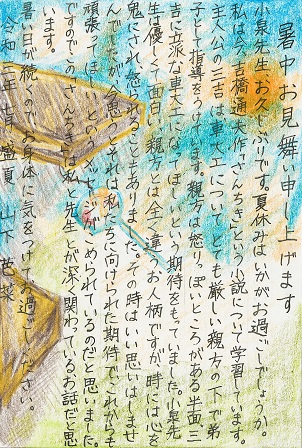 暑中お見舞い申し上げます
小泉先生お久しぶりです。夏休みはいかがお過ごしでしょうか。
私は今吉橋通夫作「さんちき」という小説について学習しています。
主人公の三吉は車大工についてとても厳しい親方の下で弟
子として指導をうけています。親方は怒りっぽいところがある半面三
吉に立派な車大工になってほしいという期待をもていました。小泉先
生は優しくて面白い親方とは全く違うお人柄ですが時には心を
鬼にされ怒られることもありました。その時はいい思いはしませ
んでしたが今思うとそれは私たちに向けられた期待でこれからも
頑張ってほしいというメッセージがこめられているのだと思いました。
ですのでこの「さんちき」は私と先生とが深く関わっているお話だと思
います。
暑い日が続くのでお身体に気をつけてお過ごしください。
令和二年 盛夏 山下